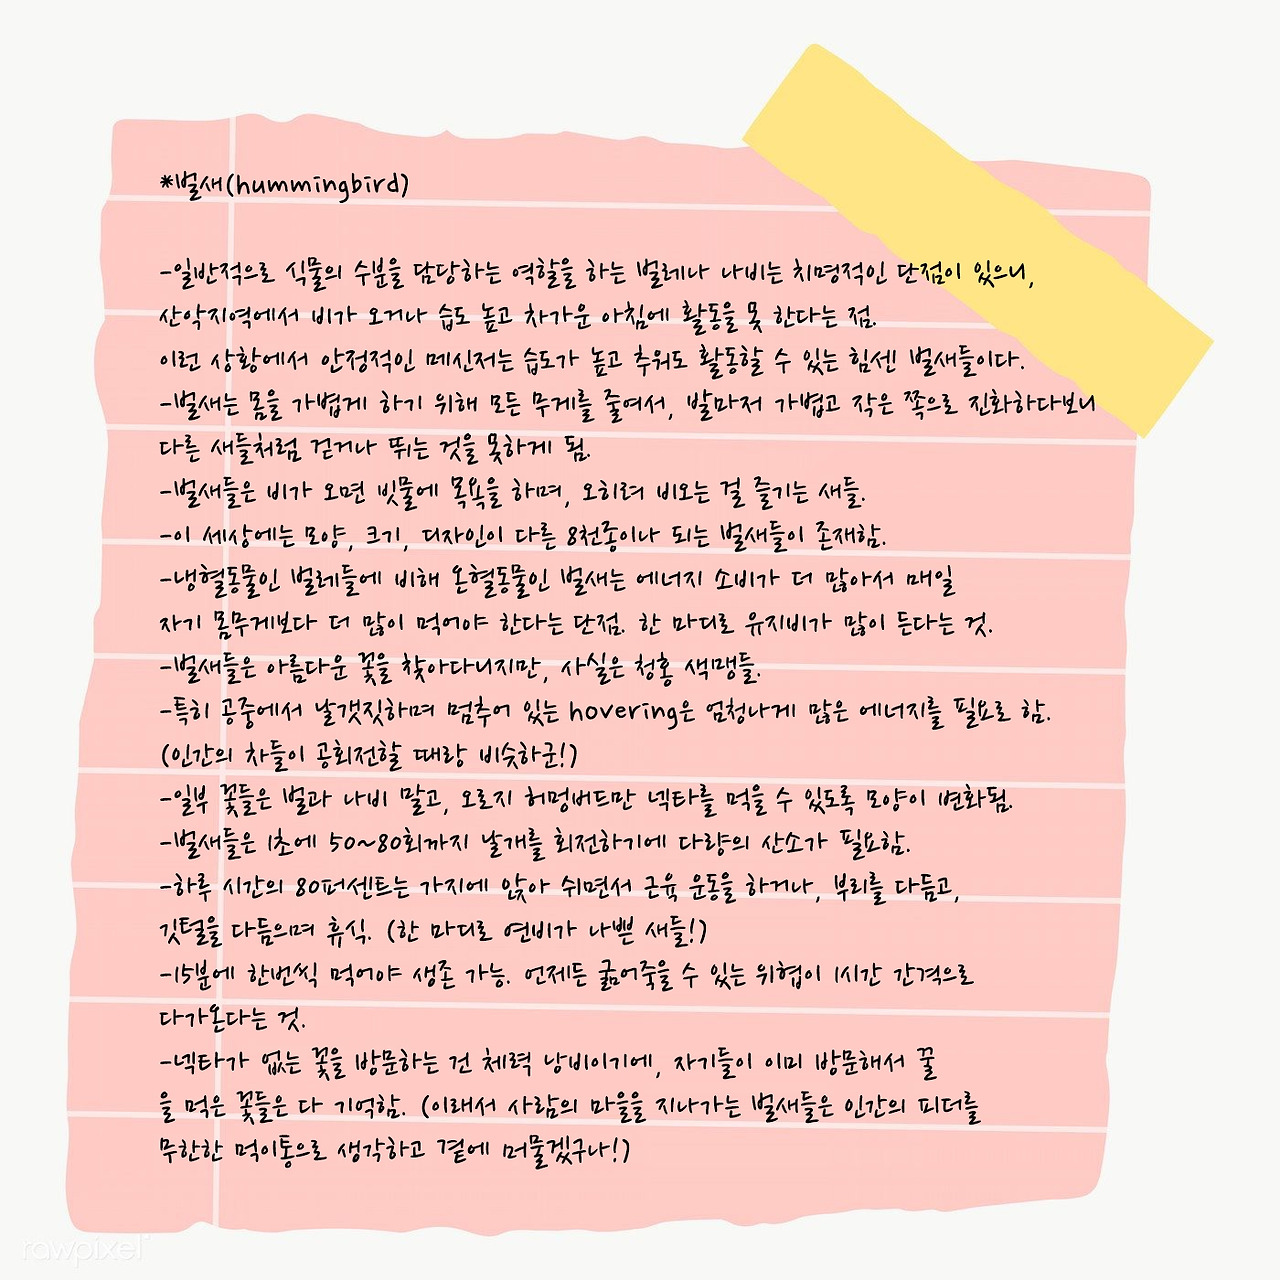 *벌새(hummingbird)
-일반적으로 식물의 수분을 담당하는 역할을 하는 벌레나 나비는 치명적인 단점이 있으니,
산악지역에서 비가 오거나 습도 높고 차가운 아침에 활동을 못 한다는 점.
이런 상황에서 안정적인 메신저는 습도가 높고 추워도 활동할 수 있는 힘센 벌새들이다.
-벌새는 몸을 가볍게 하기 위해 모든 무게를 줄여서, 발마저 가볍고 작은 쪽으로 진화하다보니
다른 새들처럼 걷거나 뛰는 것을 못하게 됨.
-벌새들은 비가 오면 빗물에 목욕을 하며, 오히려 비오는 걸 즐기는 새들.
-이 세상에는 모양, 크기, 디자인이 다른 8천종이나 되는 벌새들이 존재함.
-냉혈동물인 벌레들에 비해 온혈동물인 벌새는 에너지 소비가 더 많아서 매일
자기 몸무게보다 더 많이 먹어야 한다는 단점. 한 마디로 유지비가 많이 든다는 것.
-벌새들은 아름다운 꽃을 찾아다니지만, 사실은 청홍 색맹들.
-특히 공중에서 날갯짓하며 멈추어 있는 hovering은 엄청나게 많은 에너지를 필요로 함.
(인간의 차들이 공회전할 때랑 비슷하군!)
-일부 꽃들은 벌과 나비 말고, 오로지 허멍버드만 넥타를 먹을 수 있도록 모양이 변화됨.
-벌새들은 1초에 50~80회까지 날개를 회전하기에 다량의 산소가 필요함.
-하루 시간의 80퍼센트는 가지에 앉아 쉬면서 근육 운동을 하거나, 부리를 다듬고,
깃털을 다듬으며 휴식. (한 마디로 연비가 나쁜 새들!)
-15분에 한번씩 먹어야 생존 가능. 언제든 굶어죽을 수 있는 위협이 1시간 간격으로
다가온다는 것.
-넥타가 없는 꽃을 방문하는 건 체력 낭비이기에, 자기들이 이미 방문해서 꿀
을 먹은 꽃들은 다 기억함. (이래서 사람의 마을을 지나가는 벌새들은 인간의 피더를
무한한 먹이통으로 생각하고 곁에 머물겠구나!)
rawpixel